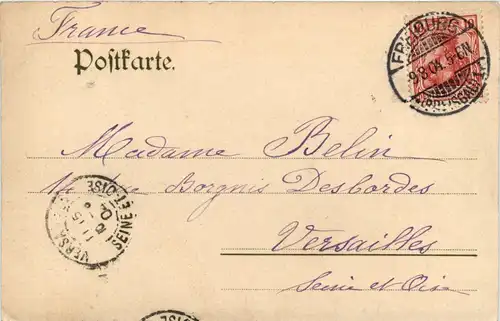 France
Postkarte.
FREIBURG
9.8.04. 5-6N.
(BREISGAU)
10
Madame Belin
14 Rue Borgnis Desbordes
Versailles
Seine et Oise
VERSAILLES
11 15
SEINE-ET-OISE
OISE